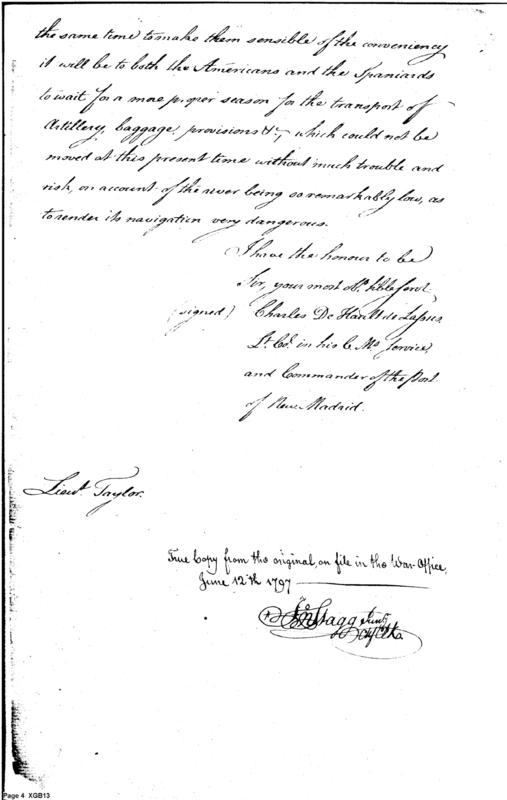 the same time to make them sensible of the conveniency
it will be to both the Americans and the Spaniards
to wait for a more proper season for the transport of
Artillery, baggage, provisions &c, which could not be
moved at this present time without much trouble and
risk, on account of the river being so remarkably low, as
to render its navigation very dangerous.
I have the honour to be
Sir, your most Ob. hble Servt.
(signed) Charles De Hault de Lassus
Lt. Col. in his C. Ms. Service,
and Commander of the Post
of New Madrid.
Lieut. Taylor.
True Copy from the original, on file in the War Office,
June 12th 1797
Jno Stagg Junr
Chf Clk
Page 4 XGB13